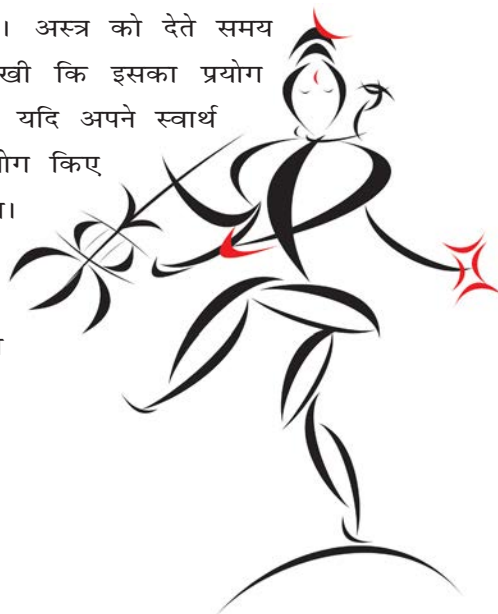 । अस्त्र को देते समय
खी कि इसका प्रयोग
यदि अपने स्वार्थ
योग किए